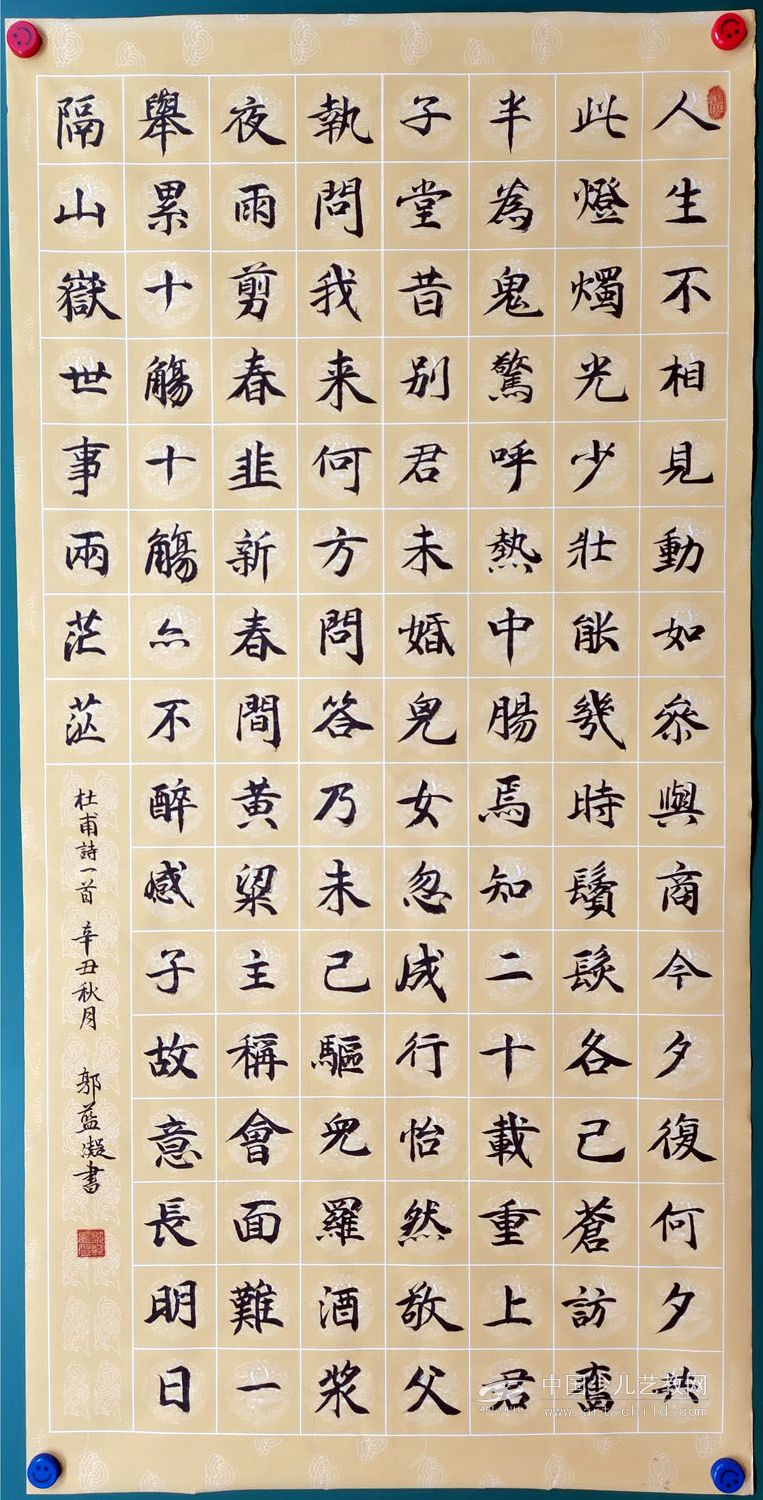 人生不相見動如參與商今夕復何夕共
此燈燭光少壯能幾時鬢髮各已蒼訪舊
半為鬼驚呼熱中腸焉知二十載重上君
子堂昔別君未婚兒女忽成行怡然敬父
執問我来何方問答乃未已驅兒羅酒浆
夜雨剪春韭新春間黄粱主稱會面難一
舉累十觴十觴亦不醉感子故意長明日
隔山嶽世事兩茫茫
杜甫詩一首 辛丑秋月 郭藍凝書
中国少儿艺教网
www.art-child.com